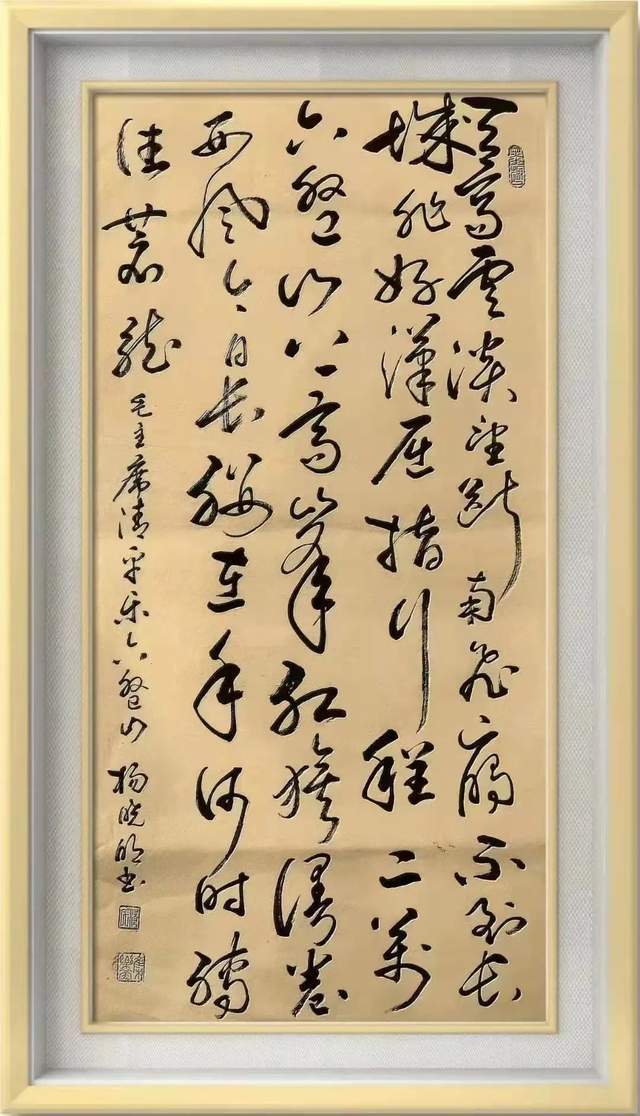 天高雲淡望断南飛雁不到长
城非好漢屈指行程二萬
六盤山上高峯红旗漫卷
西風今日长缨在手何时缚
住蒼龍
毛主席清平乐六盤山 杨晓明书